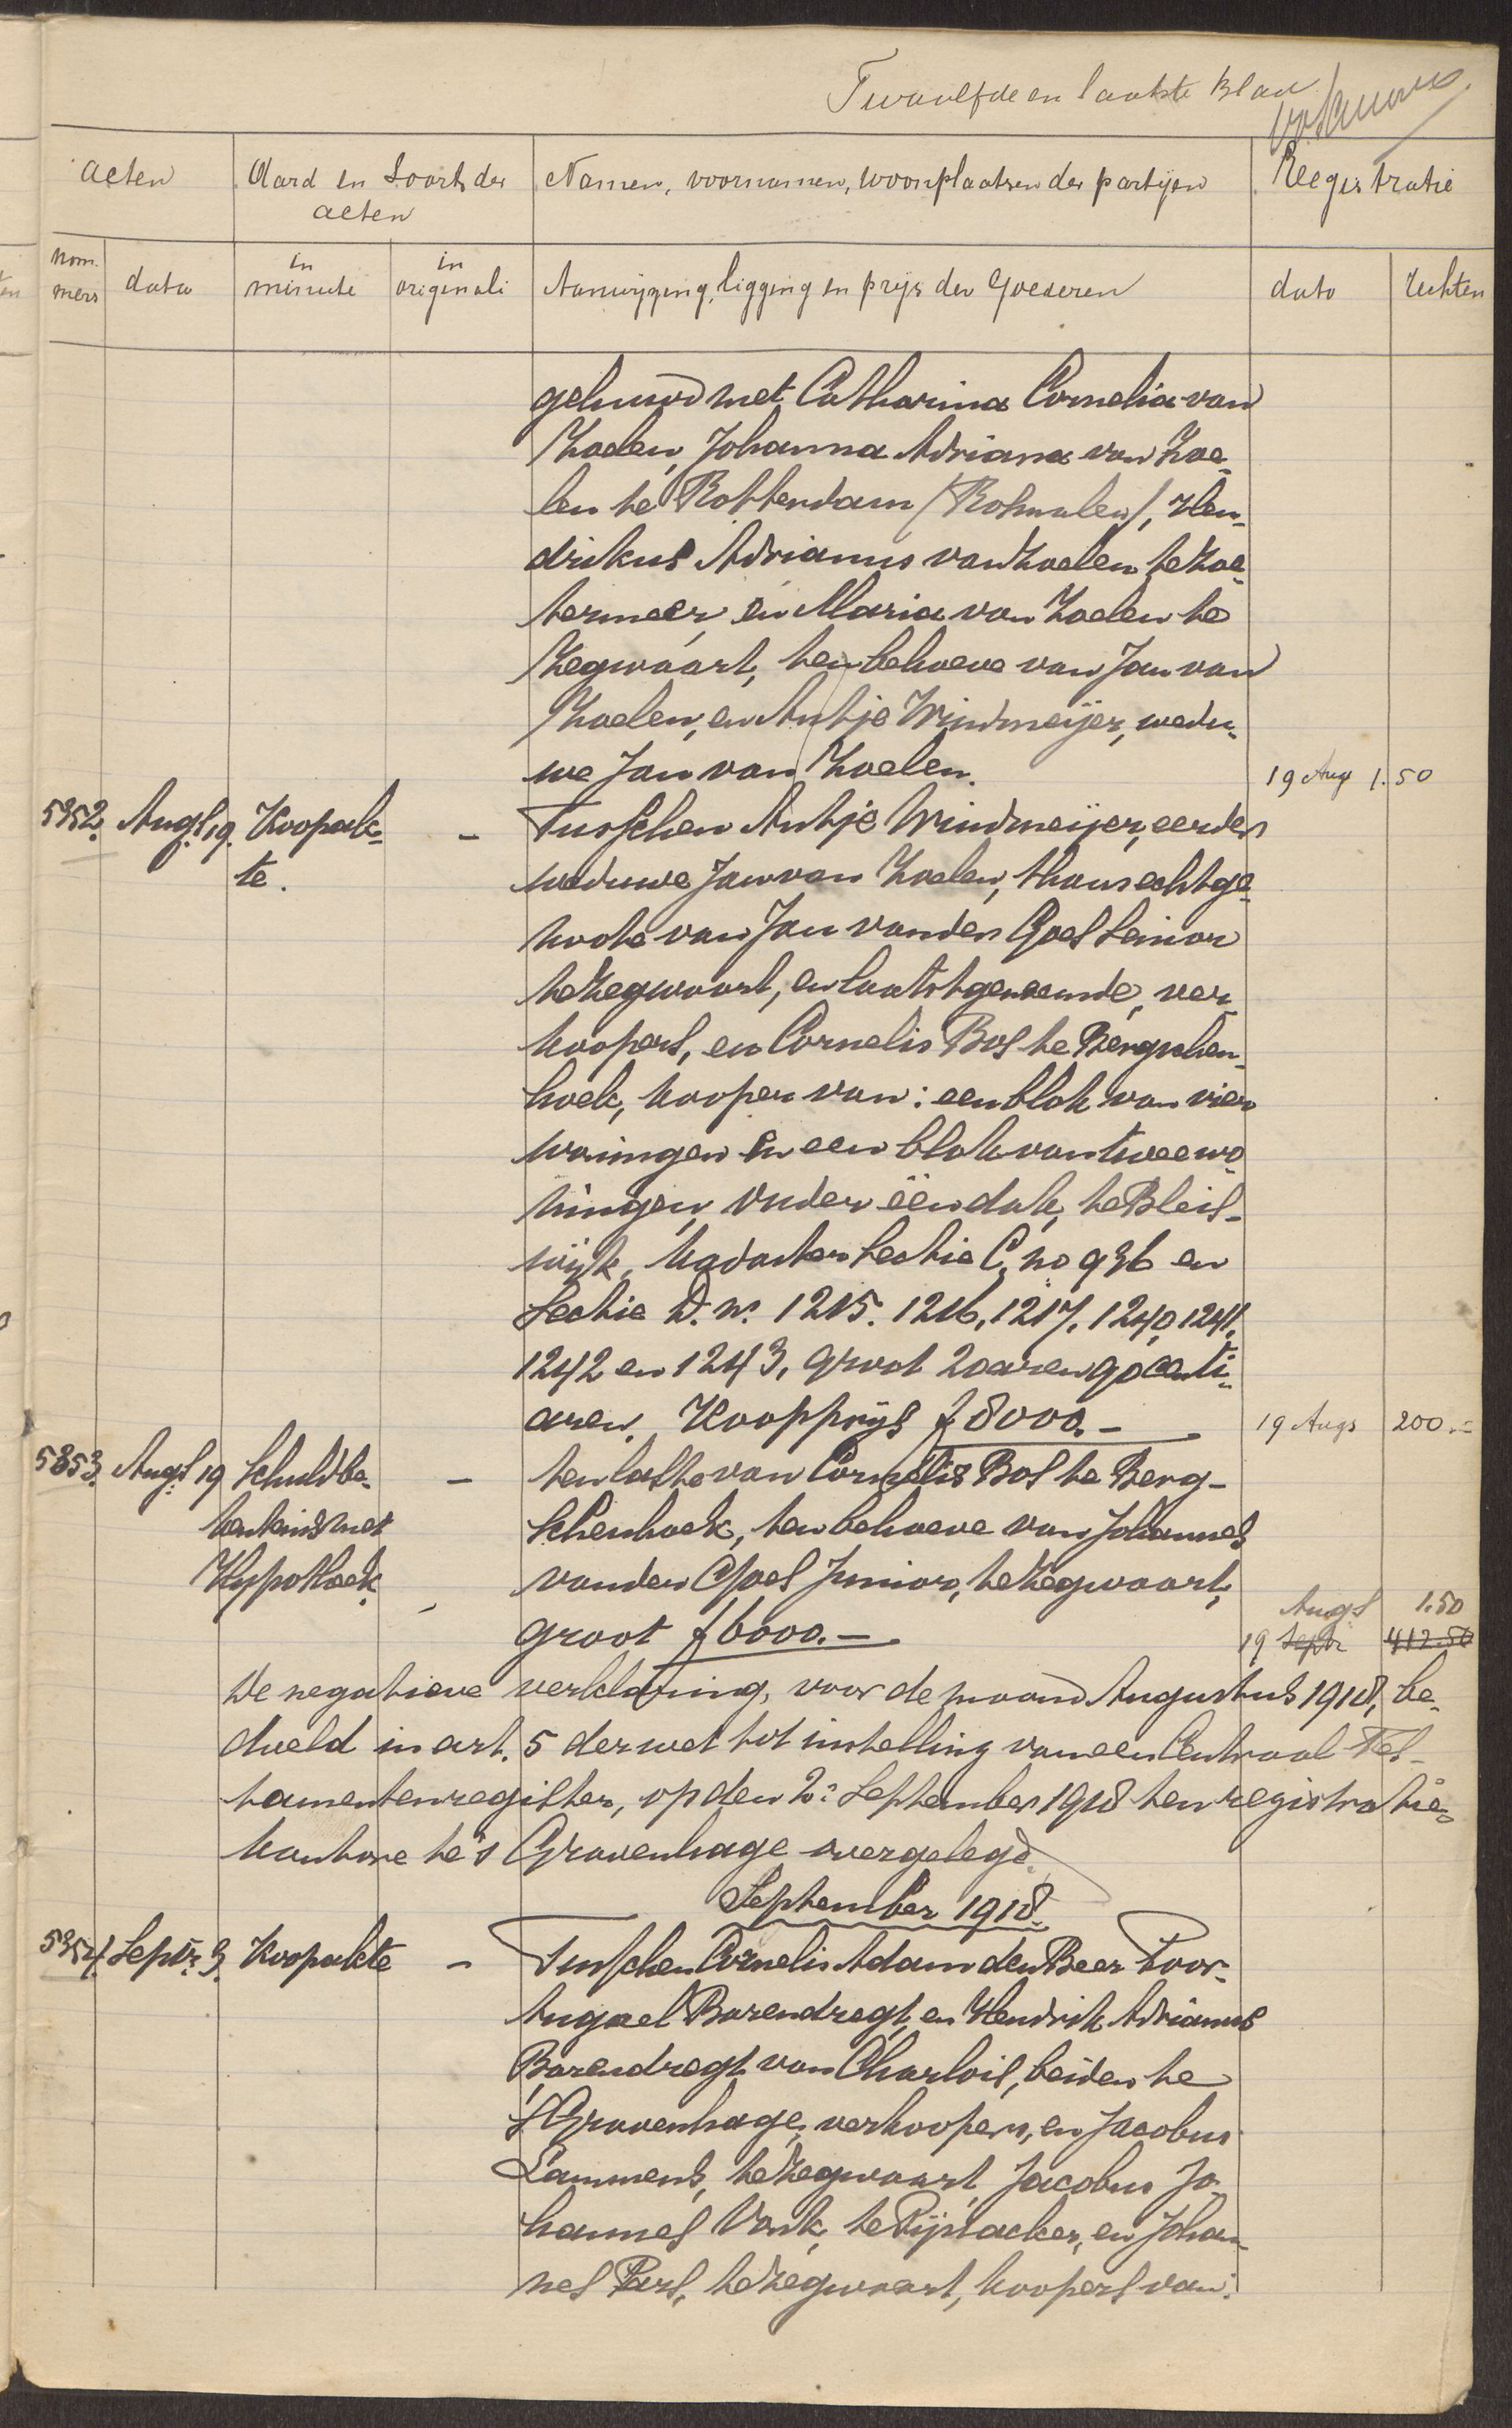 Twaalfde en laatste blad
acten
Aard en Soort der
acten
Namen, voornamen, woonplaatsen der partijen
Registratie
nom-
mers
data
in
minute
in
originali
Aanwijzing, ligging en prijs der Goederen
dato
rechten
gehuwd met Catharina Cornelia van
Zoelen, Johanna Adriana van Zoe-
len te Rotterdam /Rosmalen/, Hen-
drikus Adrianus van Zoelen te Zoe-
termeer, en Maria van Zoelen te
Zegwaart, ten behoeve van Jan van
Zoelen, en Antje Windmeijer, wedu-
we Jan van Zoelen. 19 Aug 1.50
5352. Augs. 19. Koopak- – Tusschen Antje Windmeijer, eerder
te. weduwe Jan van Zoelen, thans echtge-
noote van Jan van der Goes Senior
te Zegwaart, en laatstgenoemde, ver-
koopers, en Cornelis Bos te Bergschen-
hoek, kooper van: een blok van vier
woningen en een blok van twee wo-
ningen, onder één dak, te Bleis-
wijk, kadaster Sectie C. no 936 en
Sectie D. no. 1215. 1216, 1217, 1240, 1241,
1242 en 1243, groot 20 aren 90 centi-
aren. Koopprijs f 8000.– 19 Augs 200.–
5353. Augs. 19 Schuldbe- – ten laste van Cornelis Bos te Berg-
kentenis met schenhoek, ten behoeve van Johannes
Hypotheek. van der Goes Junior, te Zegwaart,
groot f 6000.– 19 Septr Augs 412.50 1.50
De negatieve verklaring, voor de maand Augustus 1918, be-
doeld in art. 5 der wet tot instelling van een Centraal Tes-
tamentenregister, op den 2e September 1918 ten registratie-
kantore te 's Gravenhage overgelegd.
September 1918.
5354. Septr. 3. Koopakte – Tusschen Cornelis Adam den Beer Poor-
tugael Barendregt, en Hendrik Adrianus
Barendregt van Charlois, beiden te
's Gravenhage, verkoopers, en Jacobus
Lammens, te Zegwaart, Jacobus Jo-
hannes Vonk, te Pijnacker, en Johan-
nes Pars, te Zegwaart, koopers van: